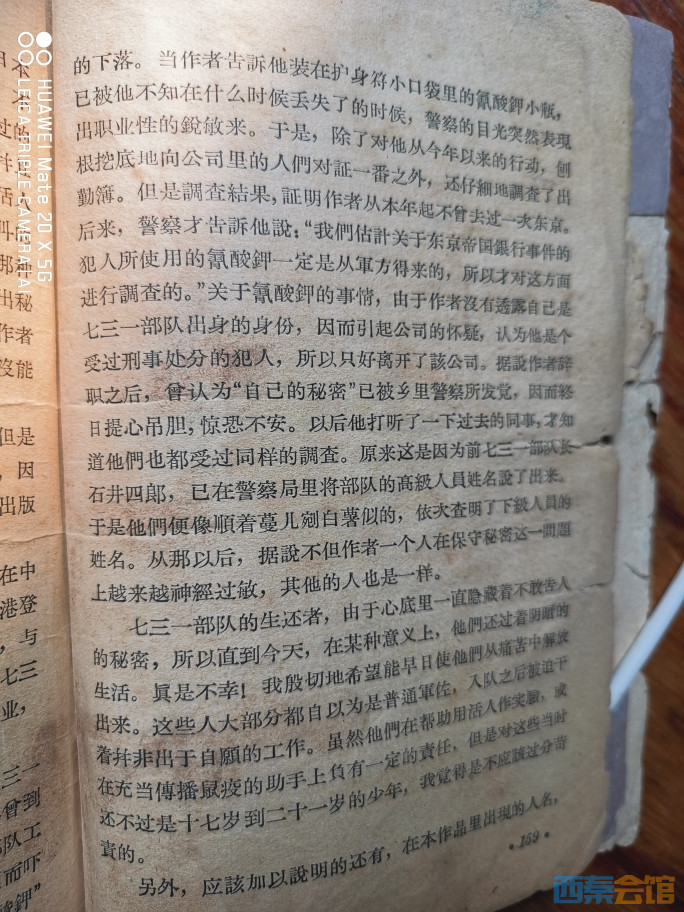 的下落。当作者告訴他装在护身符小口袋里的氰酸鉀小瓶，
已被他不知在什么时候丢失了的时候，警察的目光突然表現
出职业性的銳敏来。于是，除了对他从今年以来的行动，刨
根挖底地向公司里的人們对証一番之外，还仔細地調査了出
勤簿。但是調査結果，証明作者从本年起不曾去过一次东京。
后来，警察才告訴他說：“我們估計关于东京帝国銀行事件的
犯人所使用的氰酸鉀一定是从軍方得来的，所以才对这方面
进行調査的。”关于氰酸鉀的事情，由于作者沒有透露自己是
七三一部队出身的身份，因而引起公司的怀疑，认为他是个
受过刑事处分的犯人，所以只好离开了該公司。据說作者辞
职之后，曾认为“自己的秘密”已被乡里警察所发觉，因而終
日提心吊胆，惊恐不安。以后他打听了一下过去的同事，才知
道他們也都受过同样的調査。原来这是因为前七三一部队长
石井四郎，已在警察局里将部队的高級人員姓名說了出来。
于是他們便像順着蔓儿剜白薯似的，依次査明了下級人員的
姓名。从那以后，据說不但作者一个人在保守秘密这一問題
上越来越神經过敏，其他的人也是一样。
七三一部队的生还者，由于心底里一直隐藏着不敢告人
的秘密，所以直到今天，在某种意义上，他們还过着阴暗的
生活。眞是不幸！我殷切地希望能早日使他們从痛苦中解放
出来。这些人大部分都自以为是普通軍佐，入队之后被迫干
着幷非出于自願的工作。虽然他們在帮助用活人作实驗，或
在充当傳播鼠疫的助手上負有一定的責任，但是对这些当时
还不过是十七岁到二十一岁的少年，我觉得是不应該过分苛
責的。
另外，应該加以說明的还有，在本作品里出現的人名，
·159·
过的
活
那种
出秘
作者
沒能
但是
，因
出版
在中
港登
，与
七三
业，
三一
曾到
部队工
而吓
酸鉀”
HUAWEI Mate 20 X 5G
LEICA TRIPLE CAMERA | AI
西秦会馆